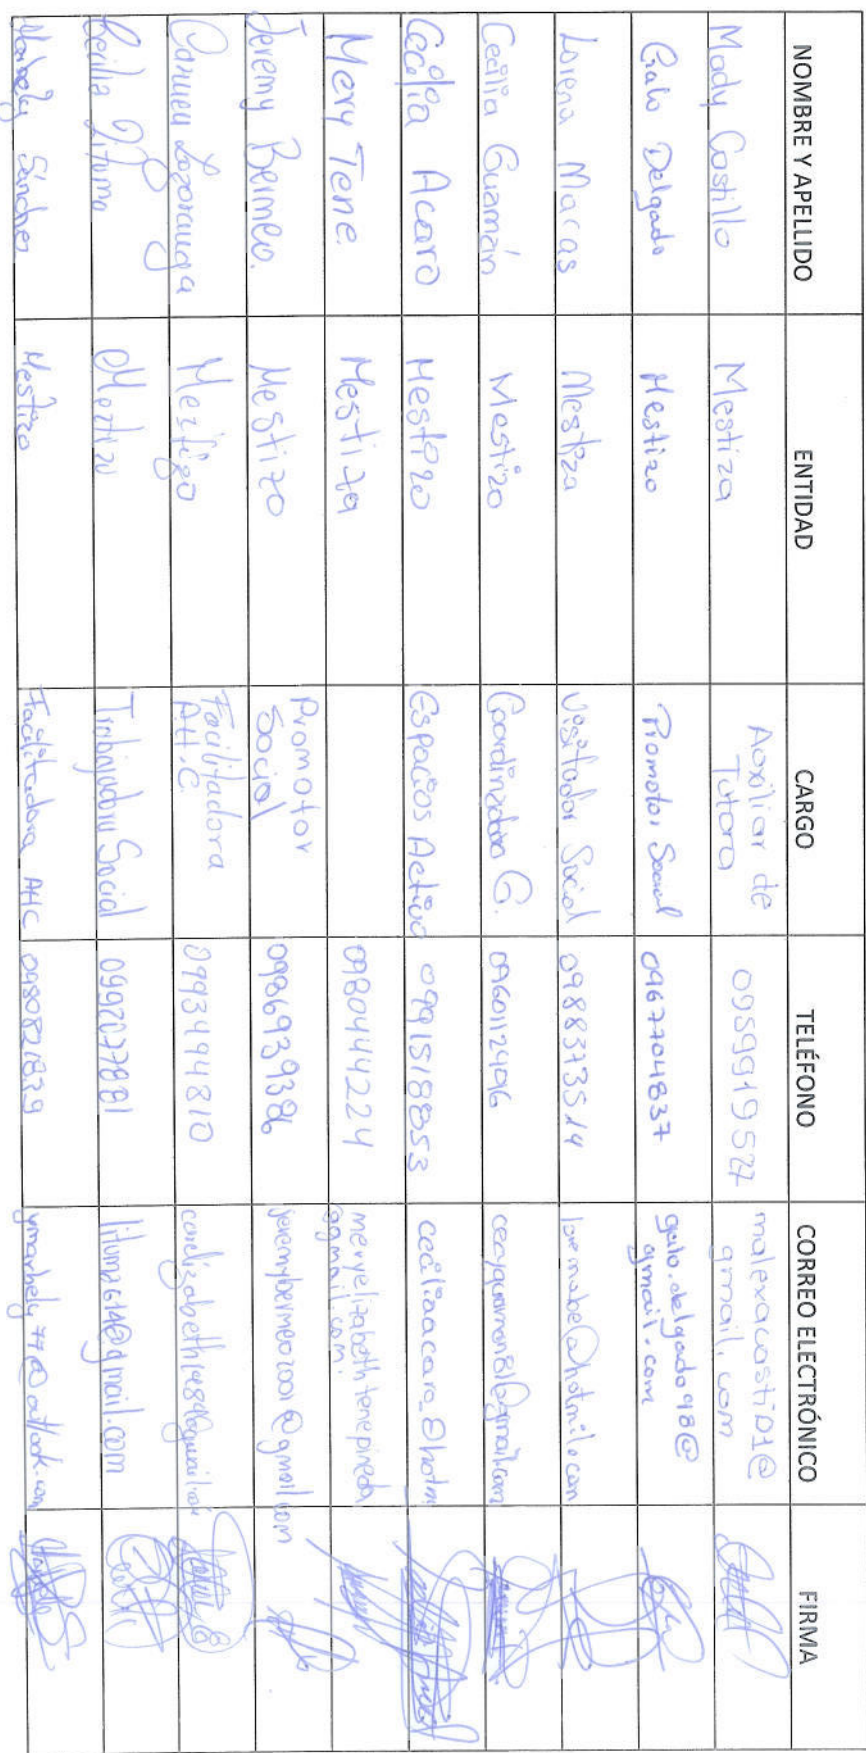 NOMBRE Y APELLIDO ENTIDAD CARGO TELÉFONO CORREO ELECTRÓNICO FIRMA
Mady Castillo Mestiza Auxiliar de Tutora 0959919527 malexacasti01@gmail.com
Galo Delgado Mestizo Promotor Social 0967704837 galo.delgado98@gmail.com
Lorena Macas Mestiza Visitador Social 0988373514 loremabe@hotmil.com
Cecilia Guamán Mestizo Coordinadora G. 0960112496 cecyguaman81@gmail.com
Cecilia Acaro Mestizo Espacios Activo 0991518853 ceciliaacaro_@hotm
Mery Tene. Mestiza 0980444224 meryelizabethtenepineda@gmail.com.
Jeremy Bermeo. Mestizo Promotor Social 0986939386 jeremybermeo2001@gmail.com
Carmen Lozoranga Mestizo Facilitadora A.H.C. 0993494810
Cecilia Lituma Mestizo Trabajadora Social 0992077881 lituma2614@gmail.com
Sánchez Mestizo Facilitadora AHC 0980821839 ymarbely77@outlook.com